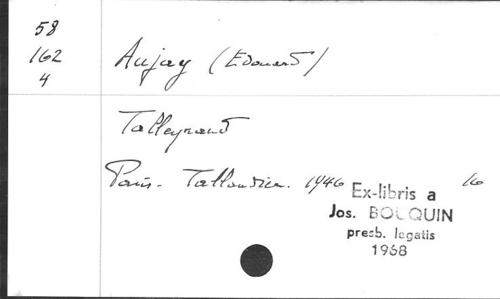 58
162
4
Aujay (Edouard)
Talleyrand
Paris. Tallandier. 1946 16
Ex-libris a
Jos. BOUQUIN
presb. legatis
1968